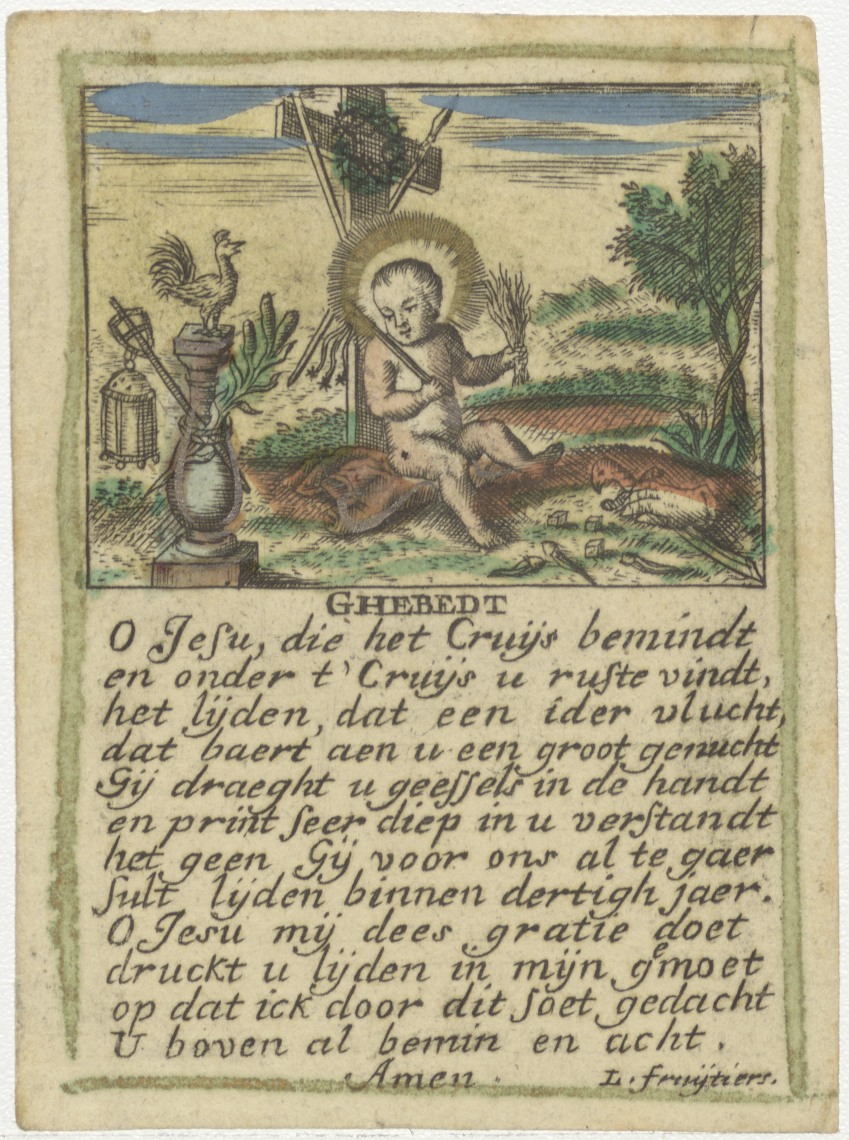 GHEBEDT
O Jeſu, die het Cruÿs bemindt
en onder t' Cruÿs u ruſte vindt,
het lÿden, dat een ider vlucht,
dat baert aen u een groot genucht
Gÿ draeght u geeſſels in de handt
en print ſeer diep in u verſtandt
het geen Gÿ voor ons al te gaer
ſult lÿden binnen dertigh jaer.
O Jesu mÿ dees gratie doet
druckt u lÿden in mÿn gemoet
op dat ick door dit ſoet gedacht
U boven al bemin en acht.
Amen.
L. fruÿtiers.